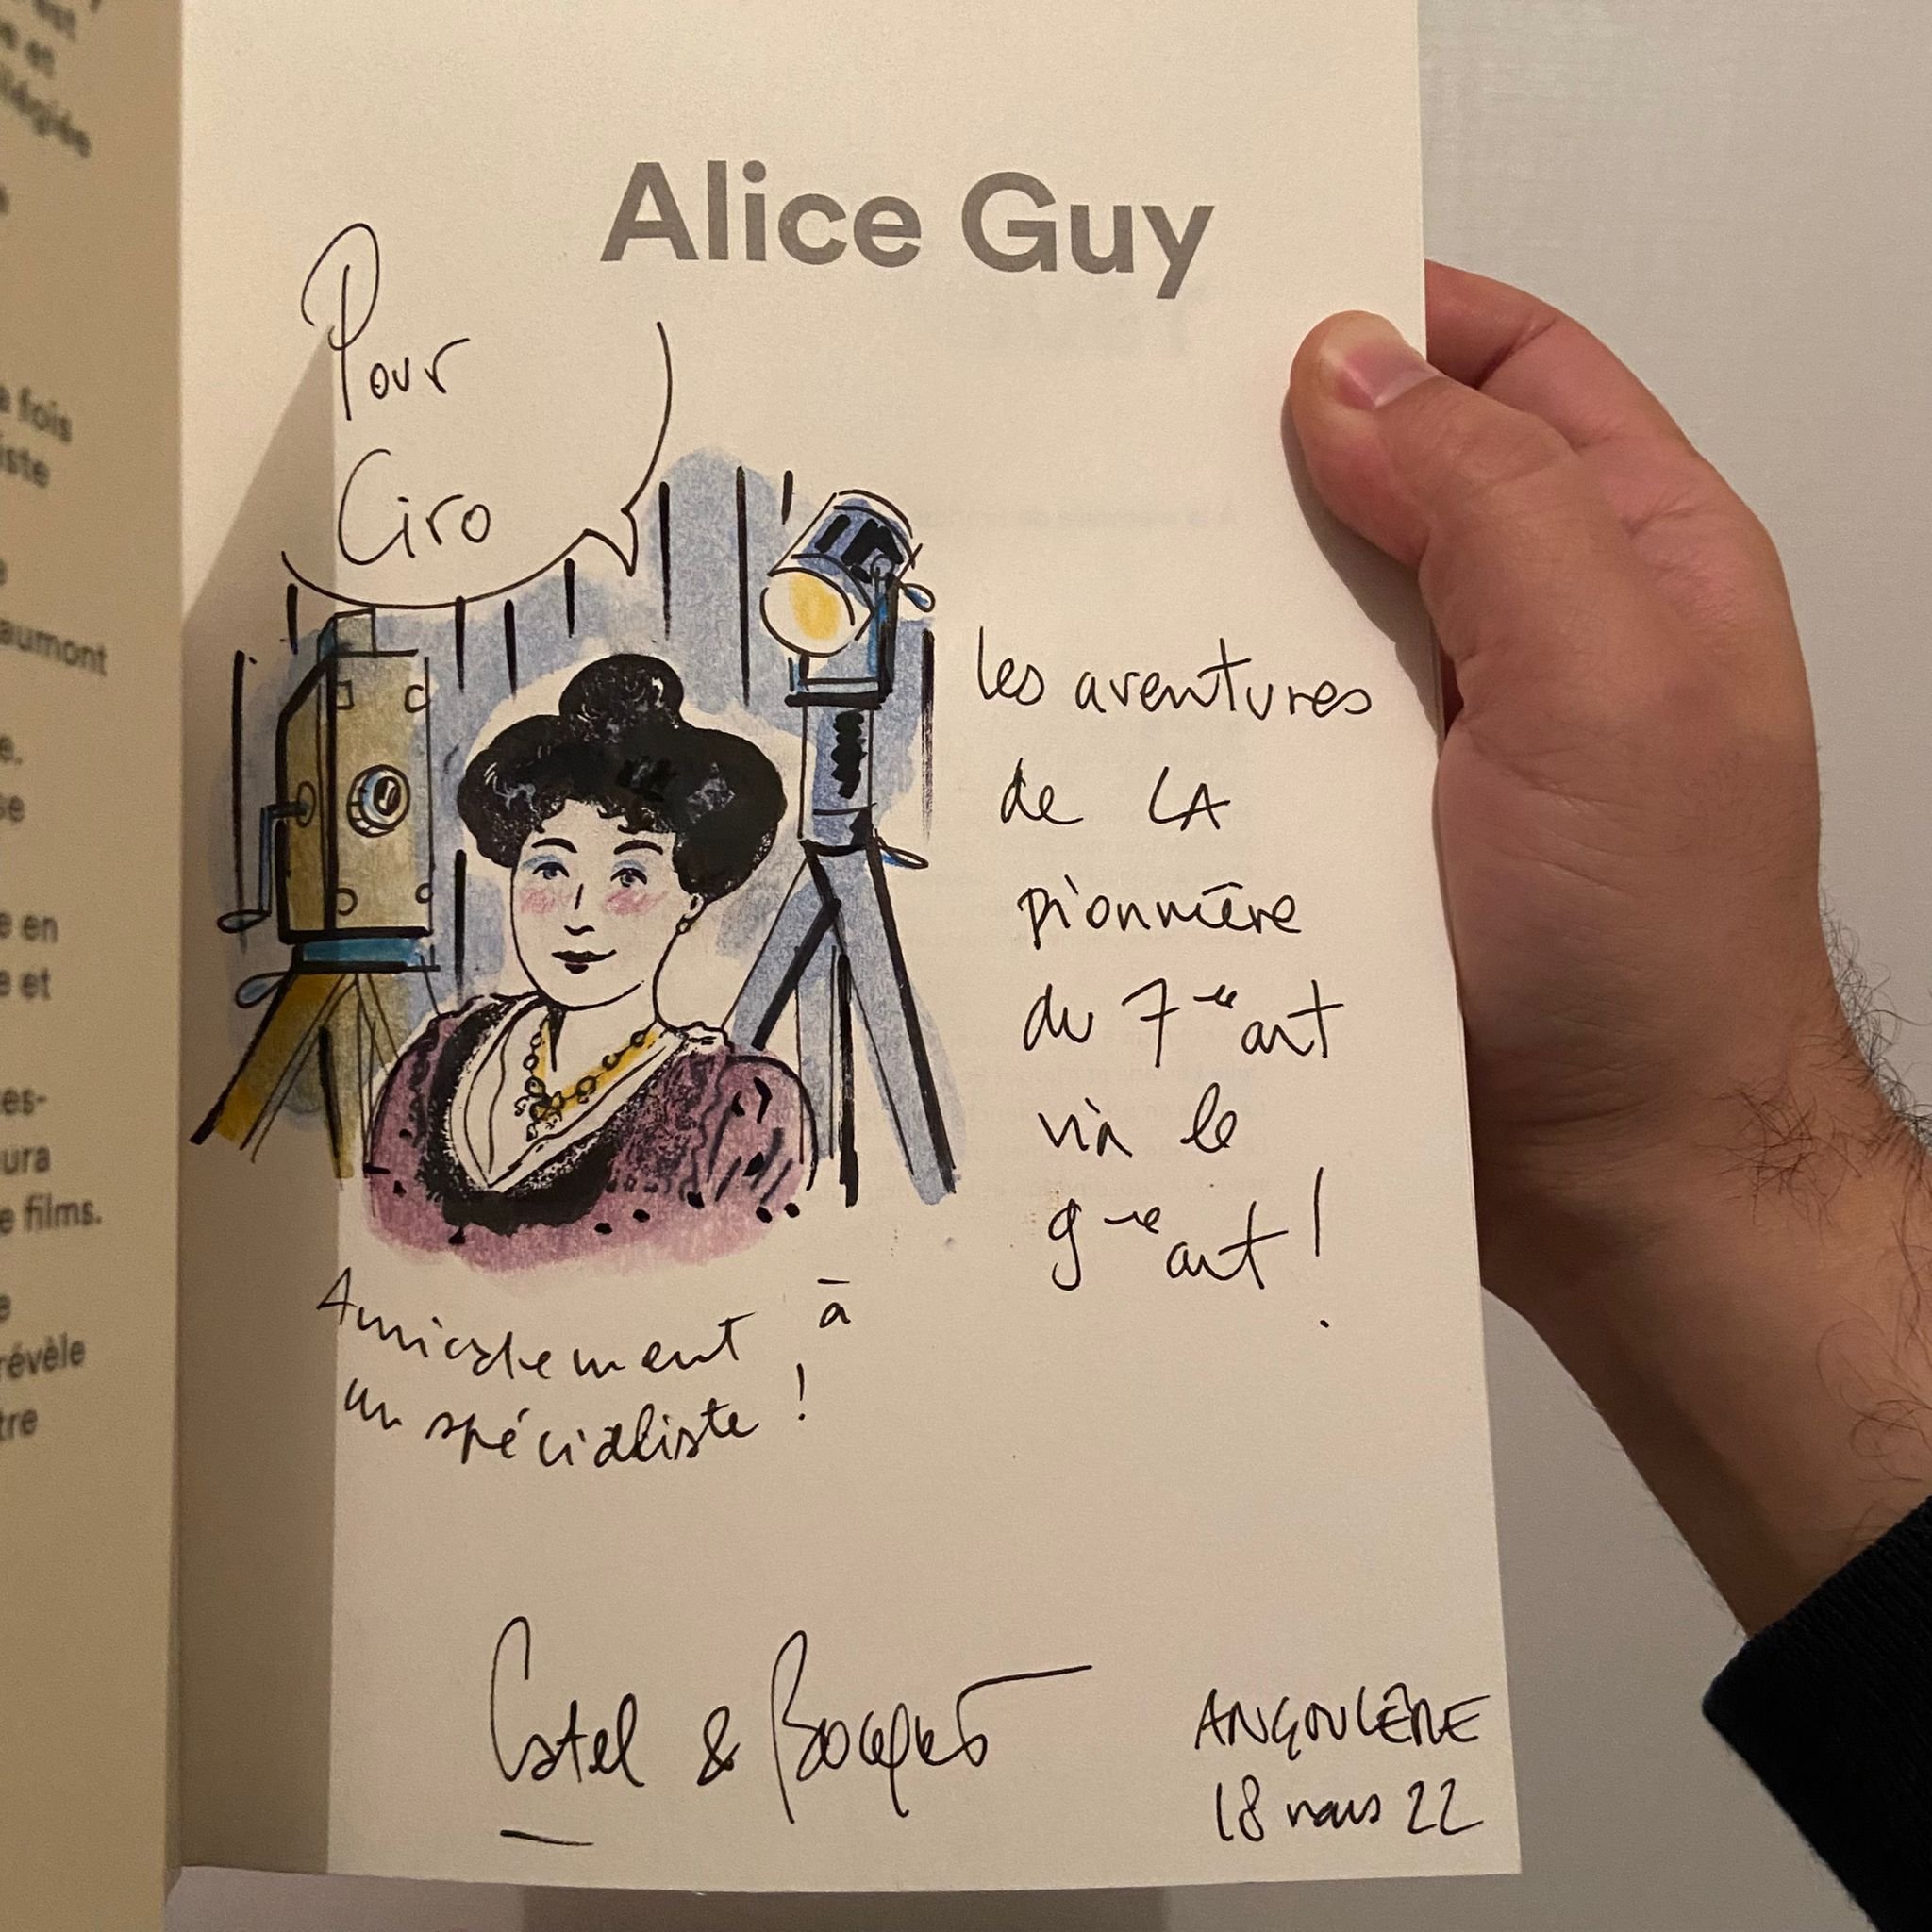 Alice Guy
Pour
Ciro
les aventures
de LA
pionnière
du 7ème art
vià le
9ème art !
Amicalement à
un spécialiste !
Catel & Bocquet
ANGOULÊME
18 mars 22
fois
iste
aumont
e.
se
e en
e et
es-
ura
e films.
révèle
tre